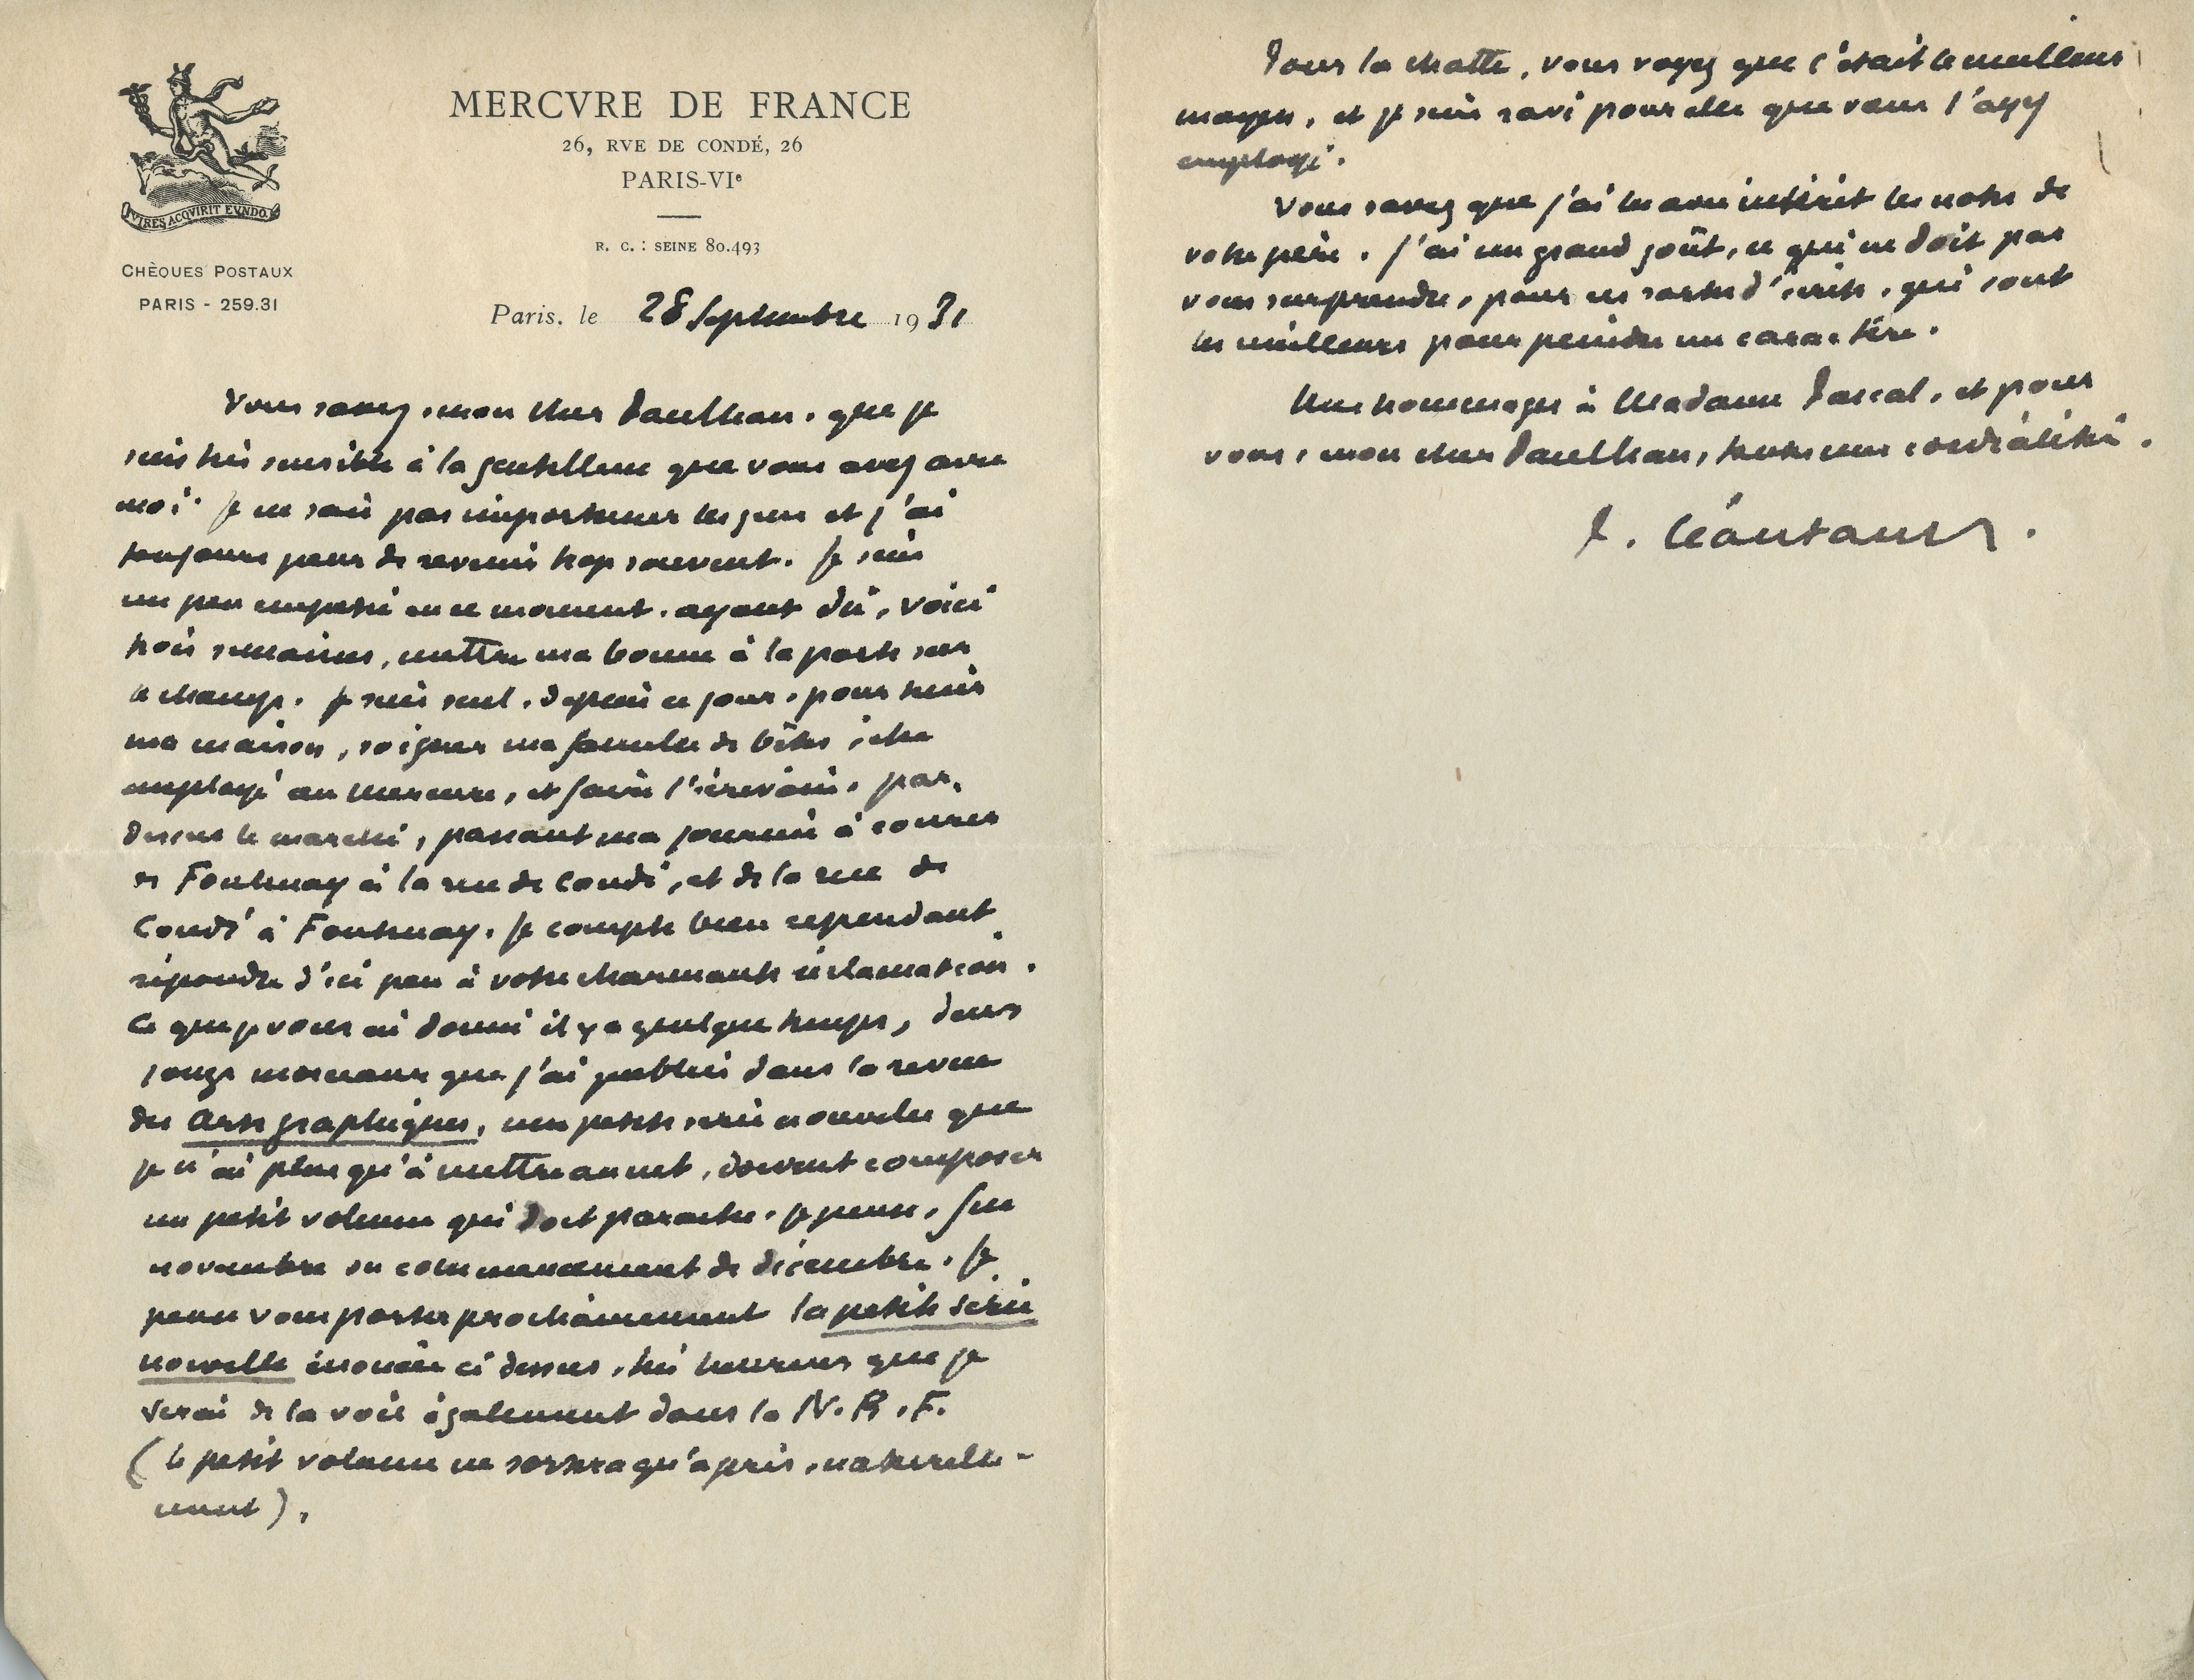 MERCVRE DE FRANCE
26, RVE DE CONDÉ, 26
PARIS-VIe
R. C. : SEINE 80.493
VIRES ACQVIRIT EVNDO
CHÈQUES POSTAUX
PARIS - 259.31
Paris, le 28 Septembre 1931
Vous savez, mon cher Paulhan, que je
suis très sensible à la gentillesse que vous avez avec
moi. Je ne sais pas importuner les gens et j'ai
toujours peur de revenir trop souvent. Je suis
un peu empêtré en ce moment, ayant dû, voici
trois semaines, mettre ma bonne à la porte sur
le champ. Je suis seul, depuis ce jour, pour tenir
ma maison, soigner ma famille de bêtes, être
employé au Mercure, et faire l'écrivain, par-
dessus le marché, passant ma journée à courir
de Fontenay à la rue de Condé, et de la rue de
Condé à Fontenay. Je compte bien cependant
répondre d'ici peu à votre charmante réclamation.
Ce que je vous ai donné il y a quelque temps, deux
longs morceaux que j'ai publiés dans la revue
des Arts graphiques, une petite série nouvelle que
je n'ai plus qu'à mettre au net, doivent composer
un petit volume qui doit paraître, je pense, fin
novembre ou commencement de décembre. Je
pense vous porter prochainement la petite série
nouvelle énoncée ci dessus, très heureux que je
serai de la voir également dans la N. R. F.
(le petit volume ne sortira qu'après, naturelle-
ment).
Pour la chatte, vous voyez que c'était le meilleur
moyen, et je suis ravi pour elle que vous l'ayez
employé.
Vous savez que j'ai lu avec intérêt les notes de
votre père. J'ai un grand goût, ce qui ne doit pas
vous surprendre, pour ces sortes d'écrits, qui sont
les meilleurs pour peindre un caractère.
Mes hommages à Madame Pascal, et pour
vous, mon cher Paulhan, toutes mes cordialités.
P. Léautaud.